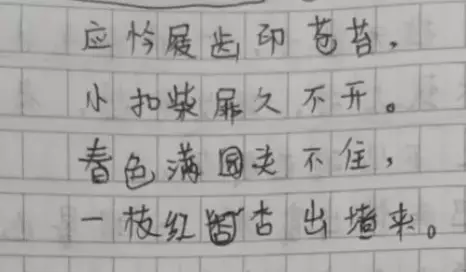 应怜屐齿印苍苔，
小扣柴扉久不开。
春色满园关不住，
一枝红杏出墙来。